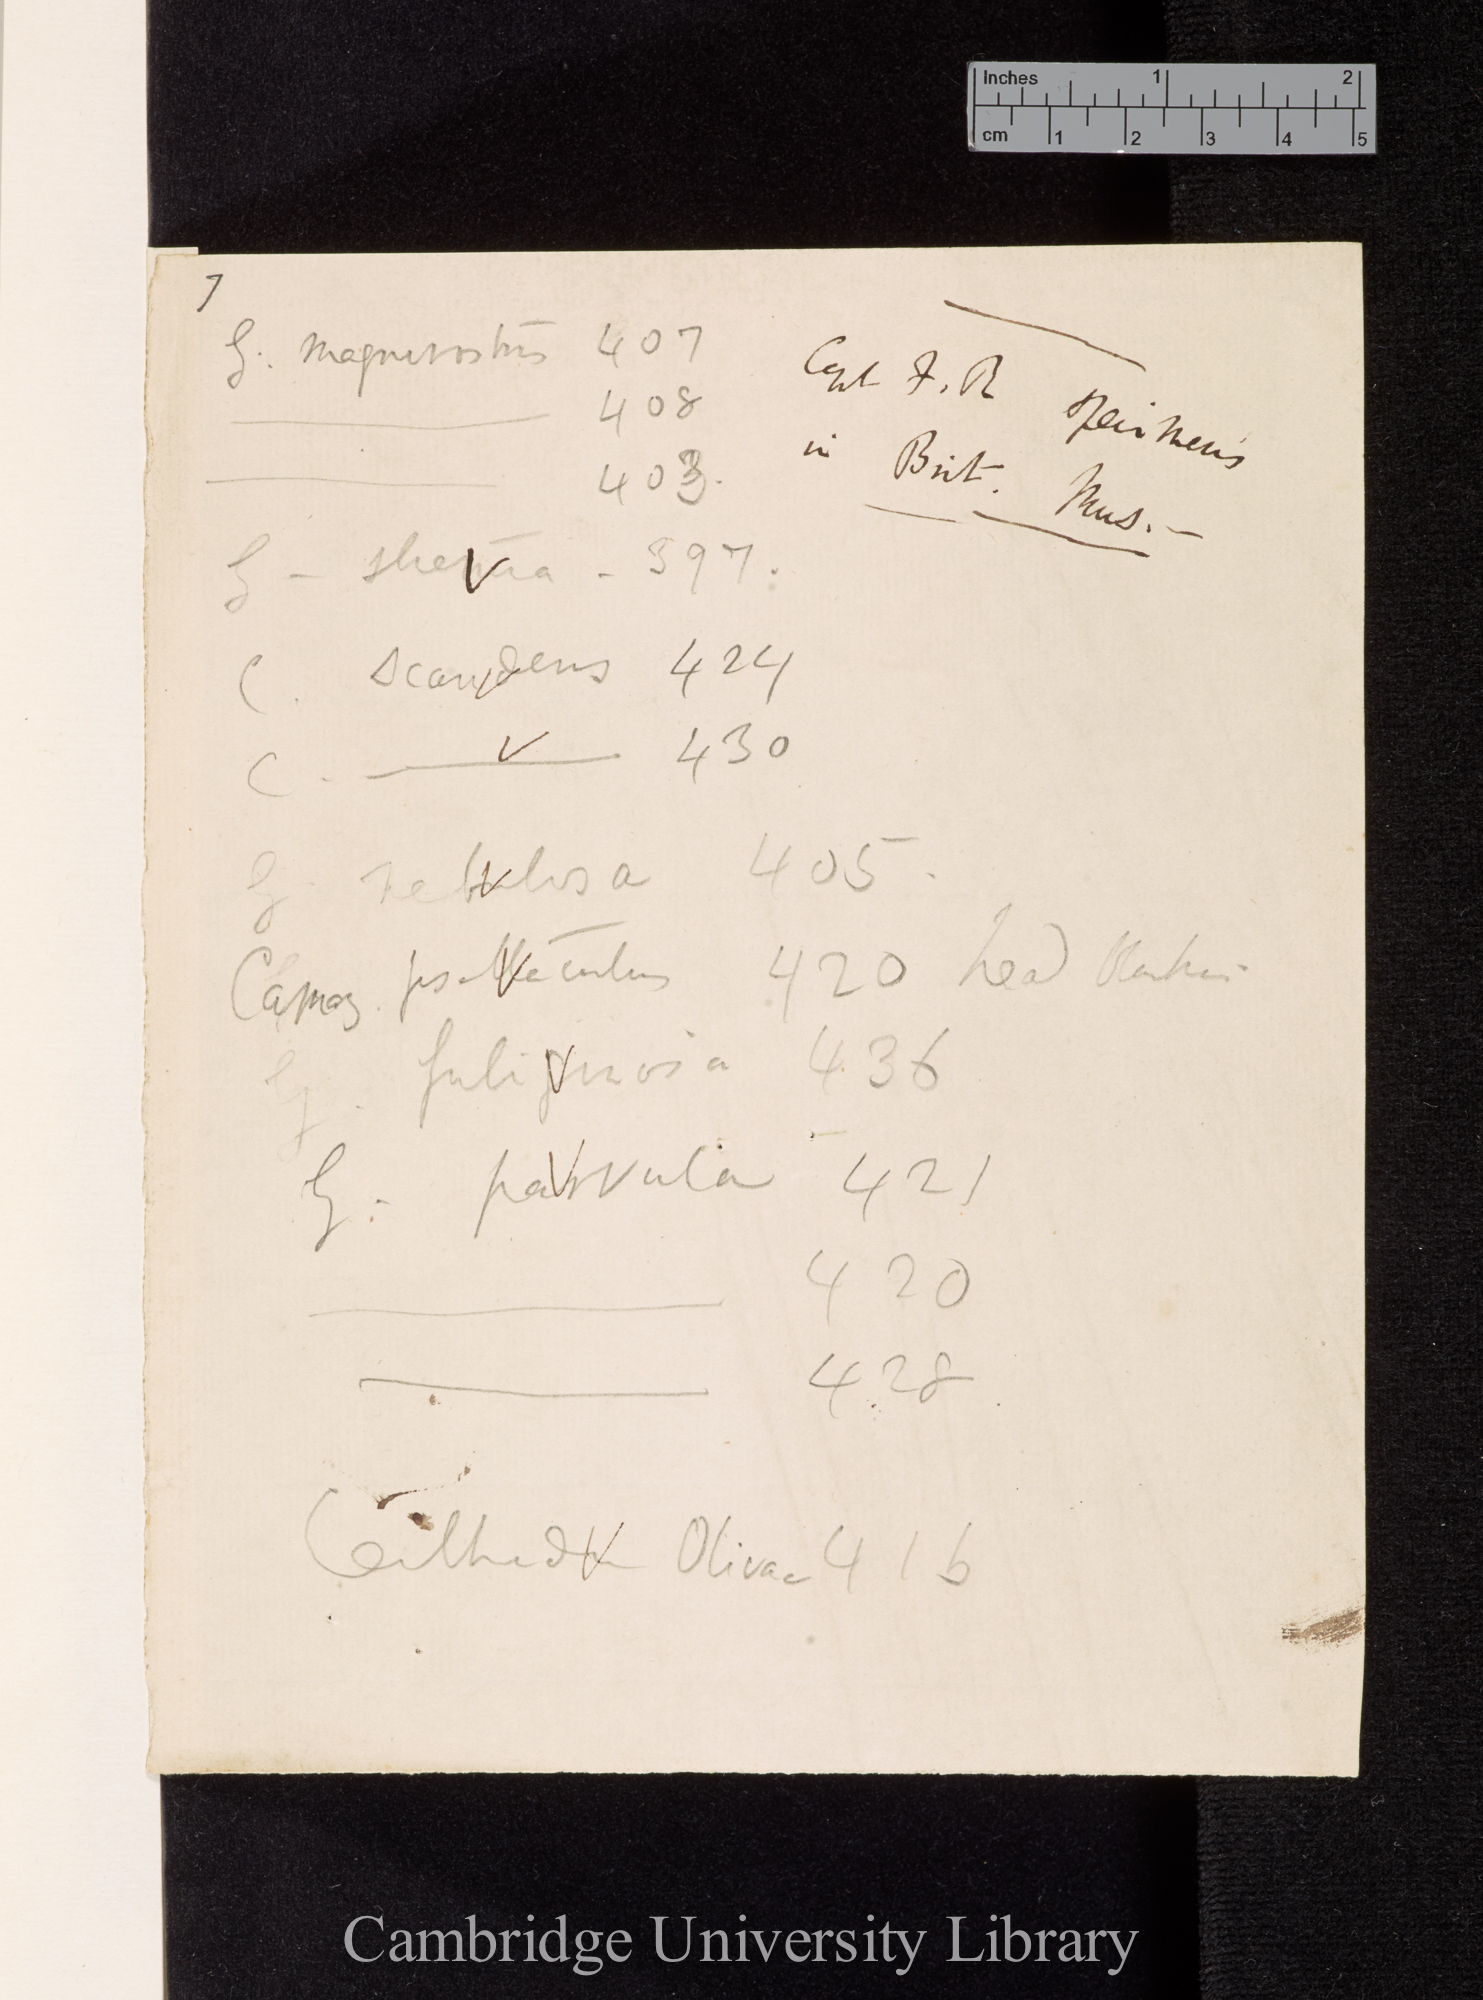 Inches 1 2
cm 1 2 3 4 5
7
G. magnirostris 407
408
403.
Capt F. R specimens
in Brit. Mus. —
G - - 397.
C. scandens 424
C. 430
G. nebulosa 405.
Camar. psittaculus 420 head blackish
G. fuliginosa 436
G. parvula 421
420
428
Certhidea Olivacea 416
Cambridge University Library